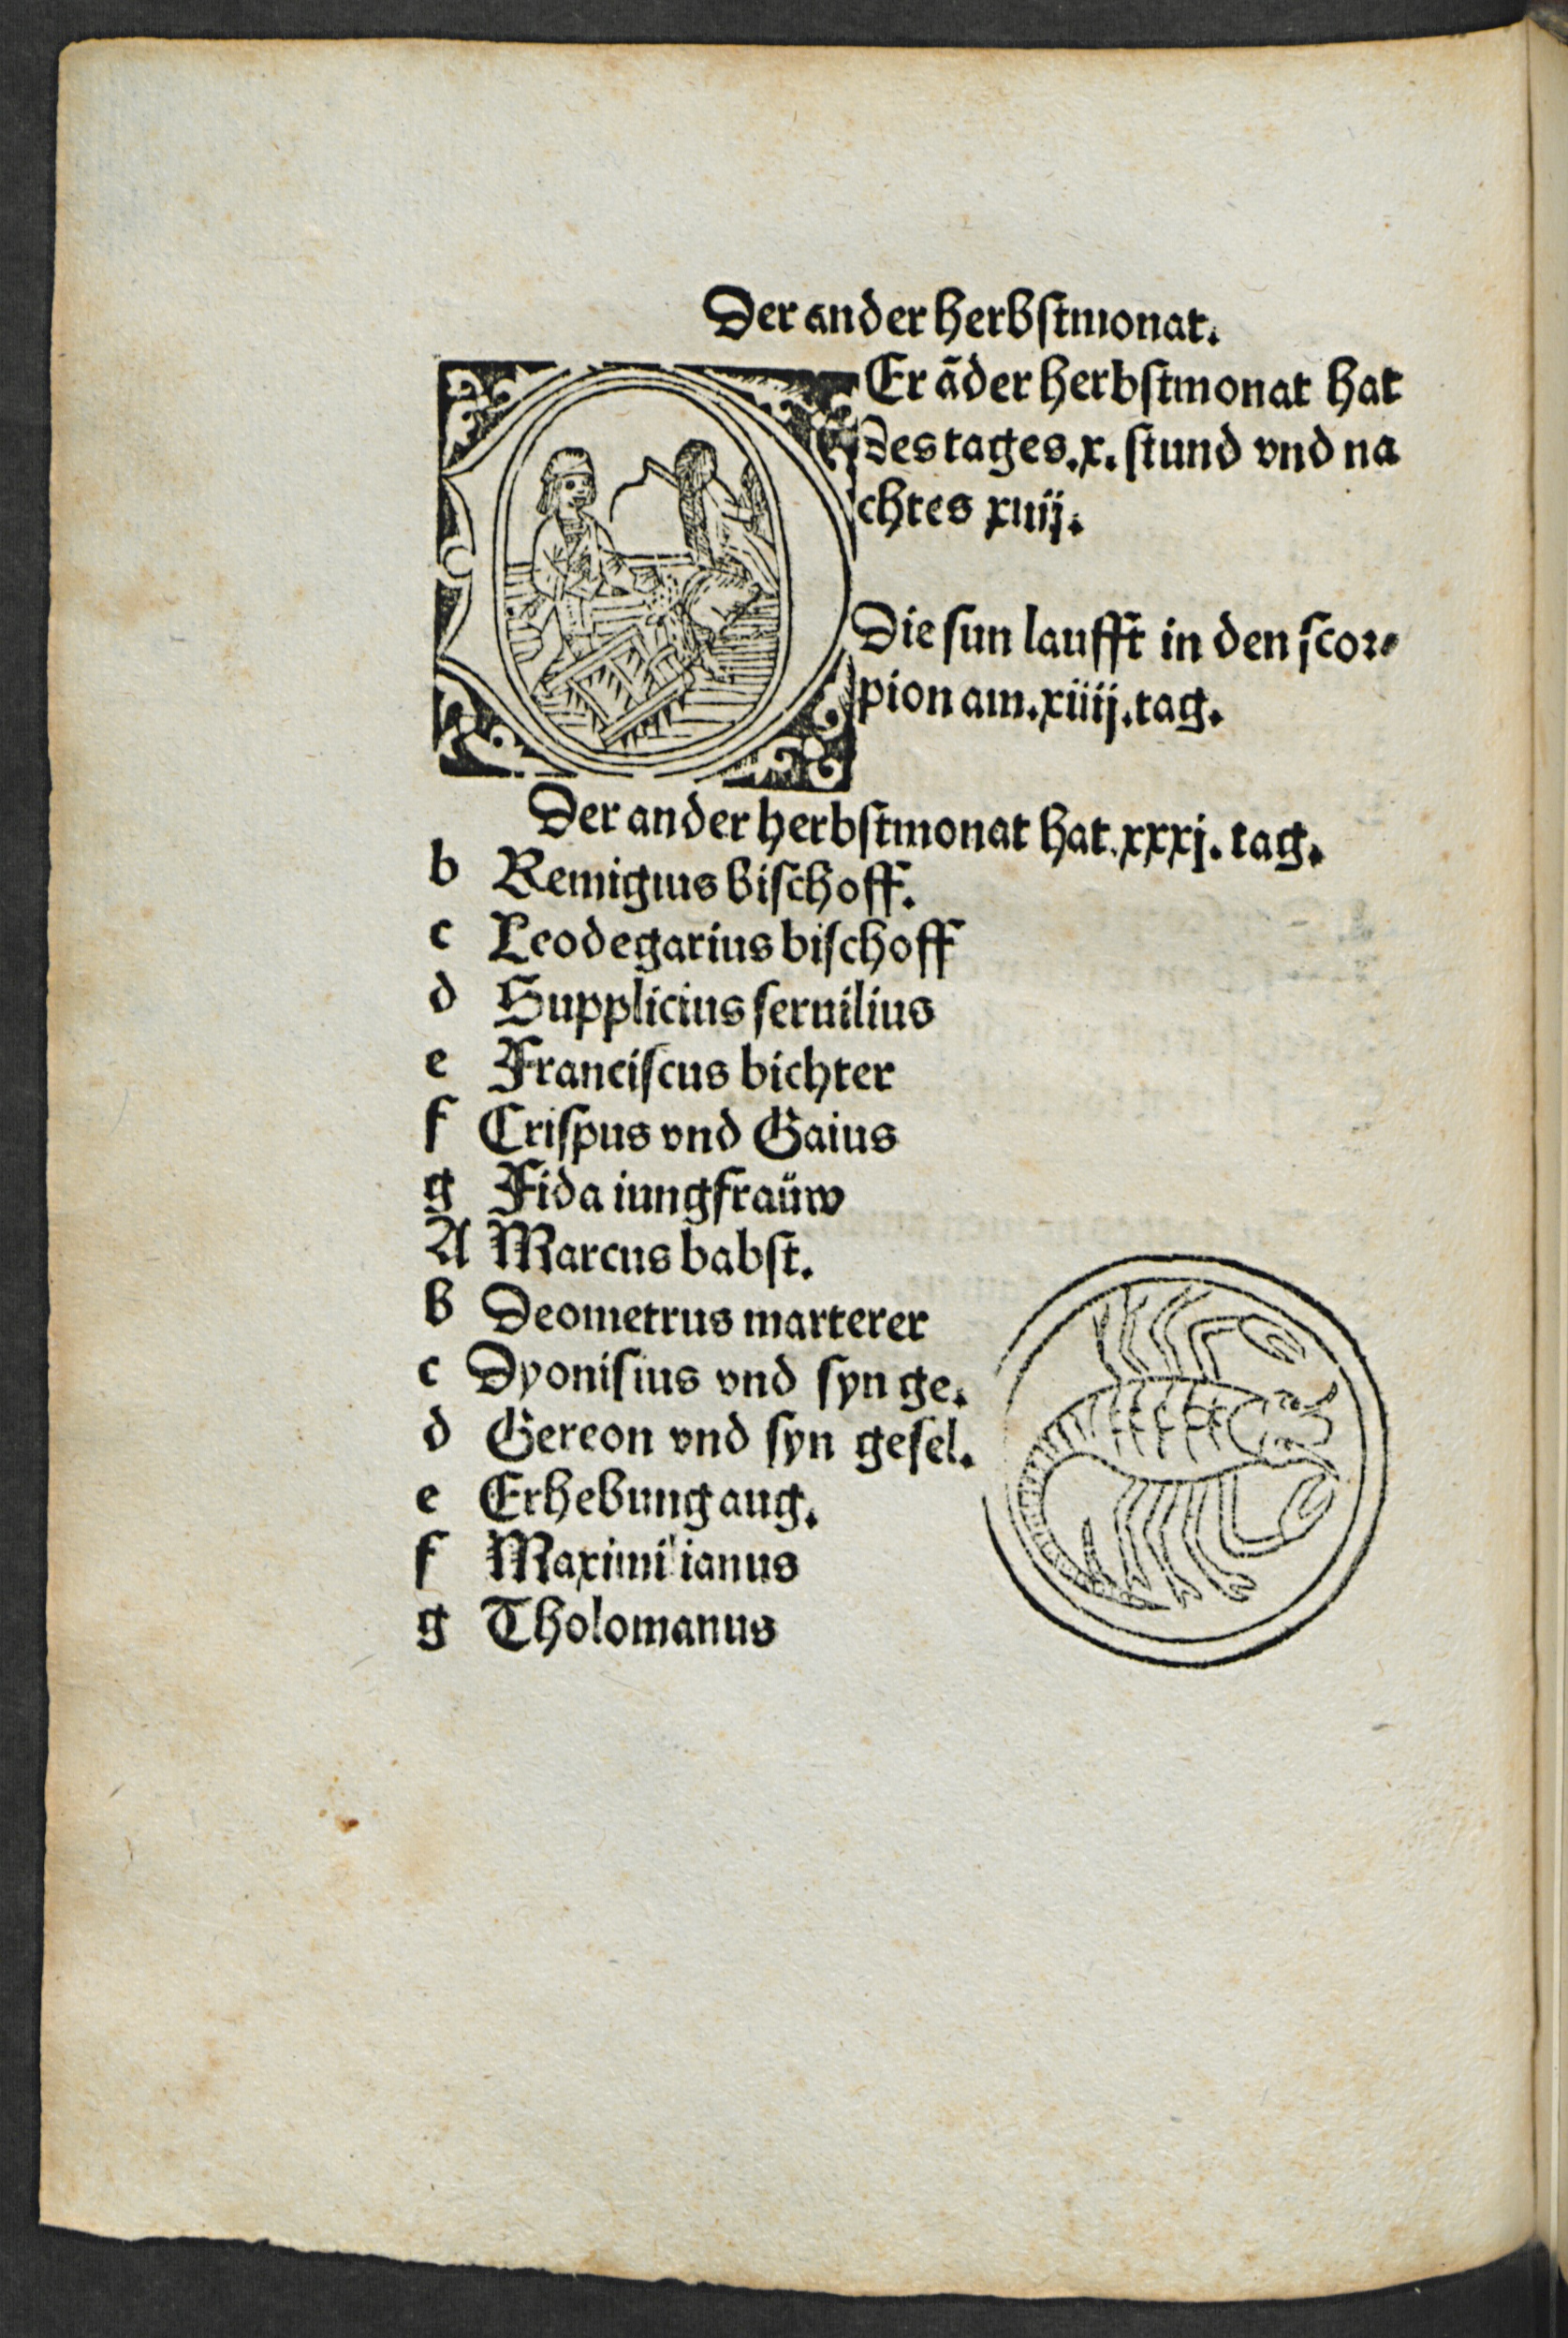 Der ander herbſtmonat.
Er āder herbſtmonat hat
des tages .x. ſtund vnd na
chtes xiiij.
Die ſun laufft in den ſcor⸗
pion am .xiiij. tag.
Der ander herbſtmonat hat .xxxj. tag.
b Remigius biſchoff.
c Leodegarius biſchoff
d Supplicius ſeruilius
e Franciſcus bichter
f Criſpus vnd Gaius
g Fida iungfraüw
A Marcus babſt.
b Deometrus marterer
c Dyoniſius vnd ſyn ge.
d Gereon vnd ſyn geſel.
e Erhebung aug.
f Maximilianus
g Tholomanus